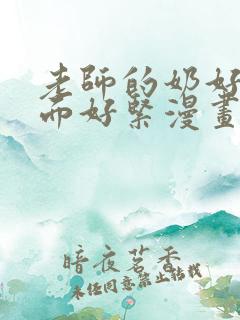 老師的奶好
而好緊漫畫
暗夜茗香
未经同意禁止转载